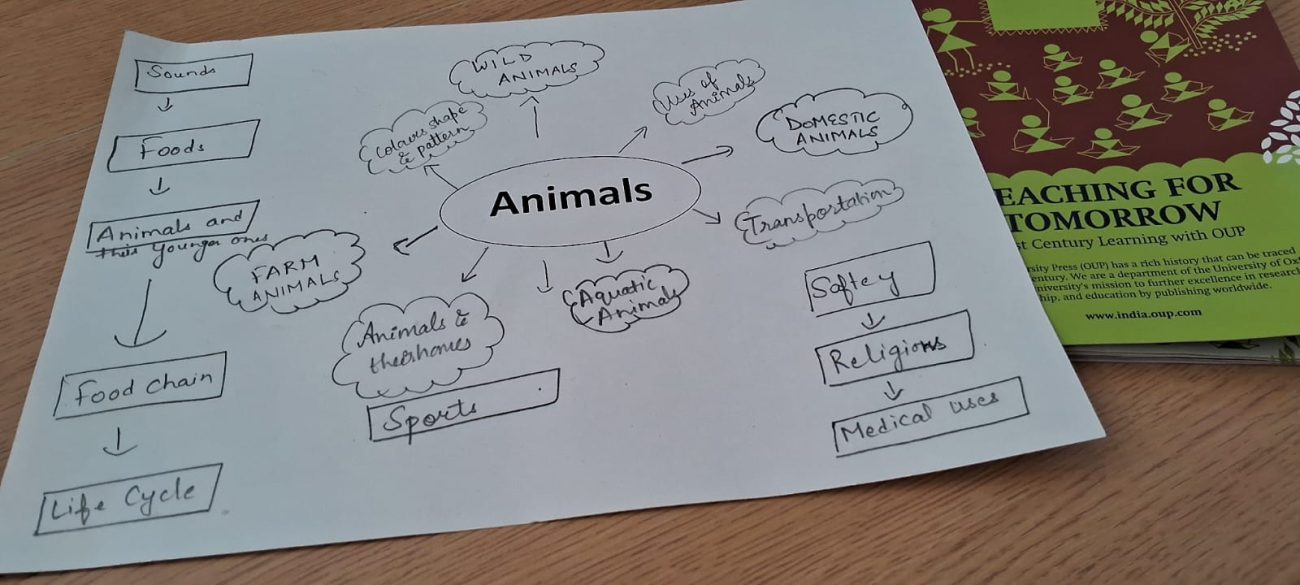 Sounds
Foods
Animals and
their younger ones
Food chain
Life Cycle
WILD
ANIMALS
Colours shape
& pattern
Uses of
Animals
DOMESTIC
ANIMALS
Animals
Transportation
FARM
ANIMALS
Animals &
their homes
Aquatic
Animals
Sports
Saftey
Religions
Medical uses
EACHING FOR
TOMORROW
st Century Learning with OUP
rsity Press (OUP) has a rich history that can be traced
entury. We are a department of the University of Ox
niversity's mission to further excellence in research
hip, and education by publishing worldwide.
www.india.oup.com